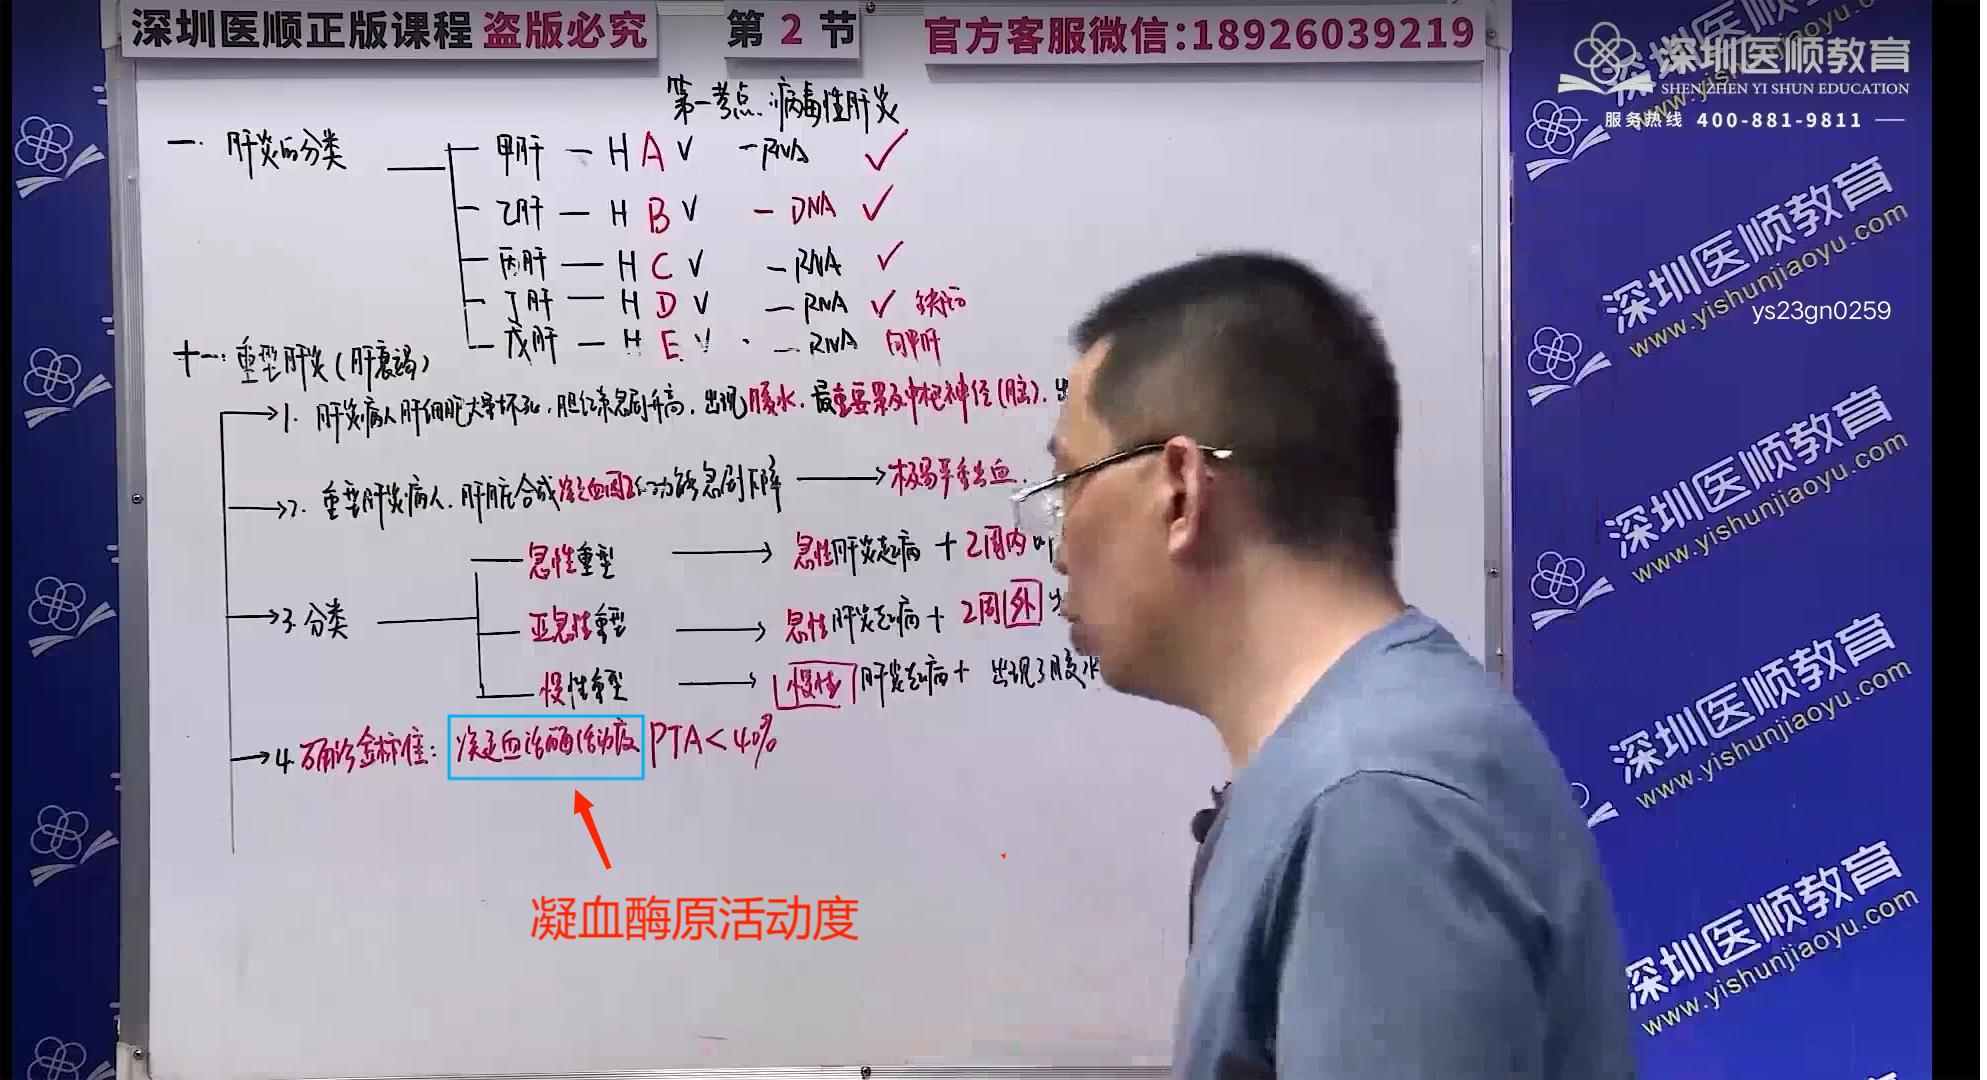 深圳医顺正版课程 盗版必究
第 2 节
官方客服微信:18926039219
深圳医顺教育
SHEN ZHEN YI SHUN EDUCATION
服务热线 400-881-9811
第一考点:病毒性肝炎
一. 肝炎的分类
甲肝 — H A V — RNA ✓
乙肝 — H B V — DNA ✓
丙肝 — H C V — RNA ✓
丁肝 — H D V — RNA ✓ 缺陷
戊肝 — H E V — RNA 同甲肝
十一. 重型肝炎(肝衰竭)
1. 肝炎病人肝细胞大量坏死,胆红素急剧升高,出现腹水,最重要累及中枢神经(脑),出
2. 重型肝炎病人,肝脏合成凝血因子功能急剧下降 → 极易严重出血.
3. 分类
急性重型 → 急性肝炎起病 + 2周内
亚急性重型 → 急性肝炎起病 + 2周外
慢性重型 → 慢性肝炎起病 + 出现了腹水
4. 确诊金标准: 凝血活酶活动度 PTA<40%
凝血酶原活动度
ys23gn0259
深圳医顺教育
www.yishunjiaoyu.com
深圳医顺教育
www.yishunjiaoyu.com
深圳医顺教育
www.yishunjiaoyu.com
深圳医顺教育
www.yishunjiaoyu.com